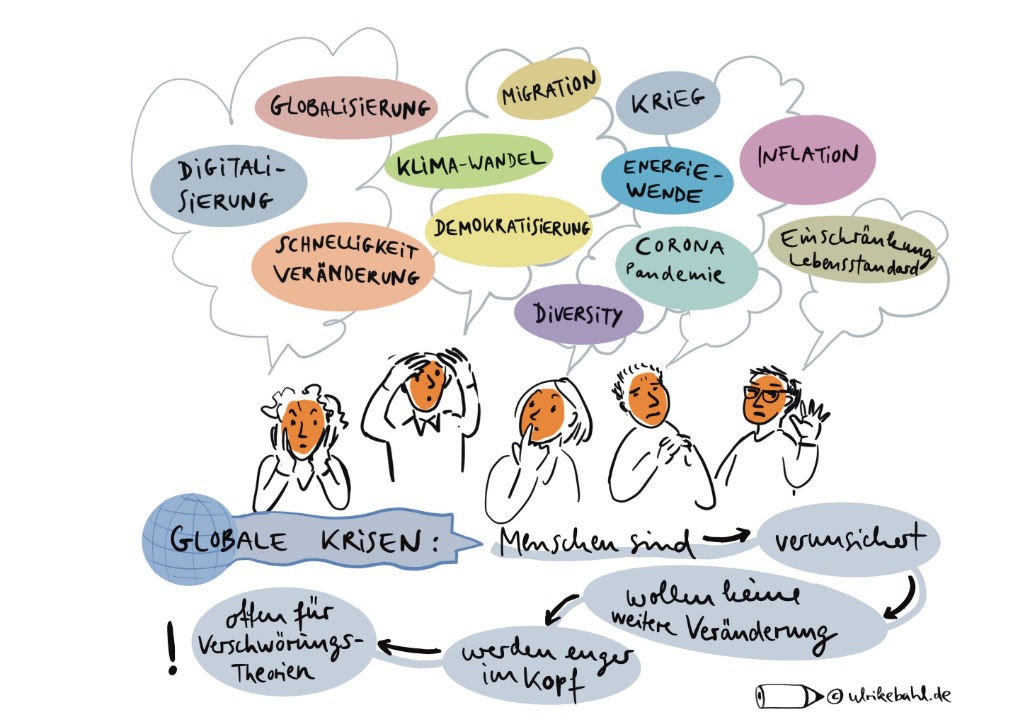 GLOBALISIERUNG
MIGRATION
KRIEG
DIGITALI-
SIERUNG
KLIMA-WANDEL
ENERGIE-
WENDE
INFLATION
SCHNELLIGKEIT
VERÄNDERUNG
DEMOKRATISIERUNG
CORONA
Pandemie
Einschränkung
Lebensstandard
DIVERSITY
GLOBALE KRISEN:
Menschen sind
verunsichert
wollen keine
weitere Veränderung
werden enger
im Kopf
offen für
Verschwörungs-
Theorien
!
© ulrikebahl.de